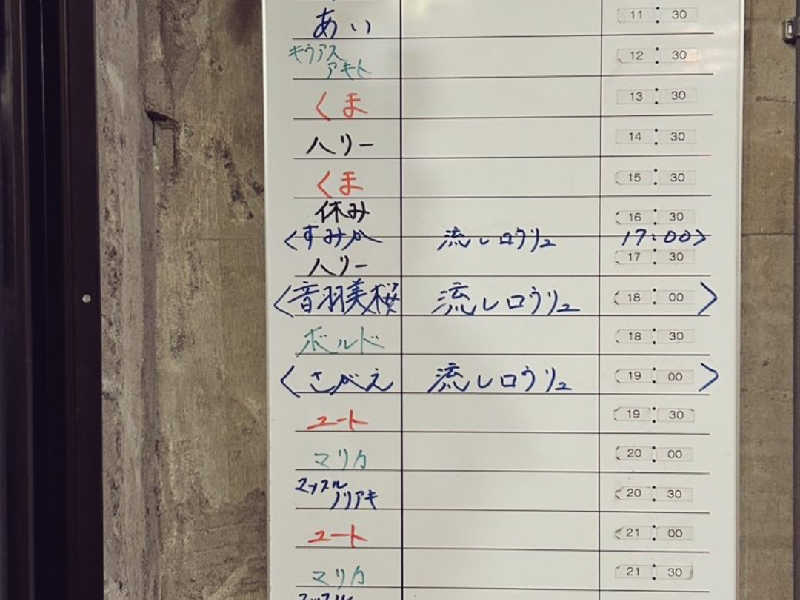 あい 11:30
キウアス
アキト 12:30
くま 13:30
ハリー 14:30
くま 15:30
休み 16:30
<すみか 流しロウリュ 17:00>
ハリー 17:30
<音羽美桜 流しロウリュ 18:00>
ボルド 18:30
<さがえ 流しロウリュ 19:00>
ユート 19:30
マリカ 20:00
マッスル
ノリアキ 20:30
ユート 21:00
マリカ 21:30